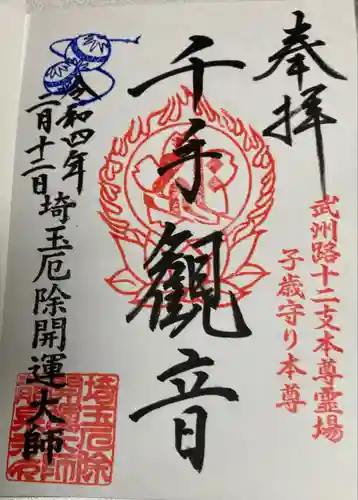 奉拝
武州路十二支本尊霊場
子歳守り本尊
千手観音
令和四年
一月十二日
埼玉厄除開運大師
埼玉厄除
開運大師